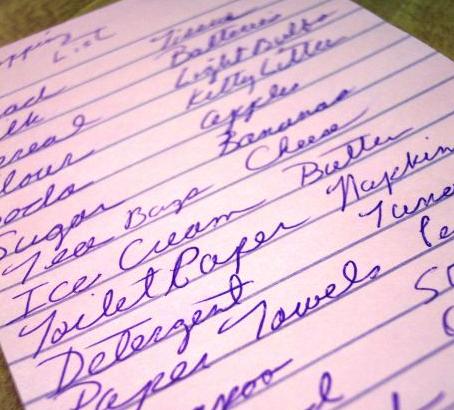 opping
List
ead
lk
ereal
lour
oda
Sugar
Tea Bags
Ice Cream
Toilet Paper
Detergent
Paper Towels
apoo
Tissue
Batteries
Light Bulbs
Kitty Litter
apples
Bananas
Cheese
Butter
Napkin
Tuna